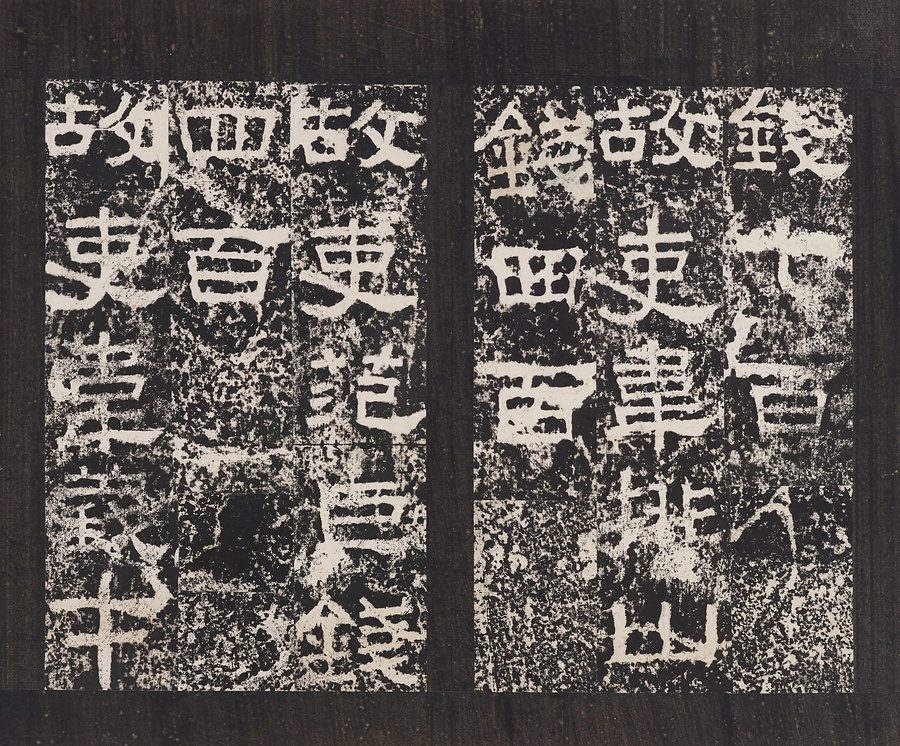 錢七百
故吏韋排山
錢四百
故吏范巨錢
四百
故吏韋義才